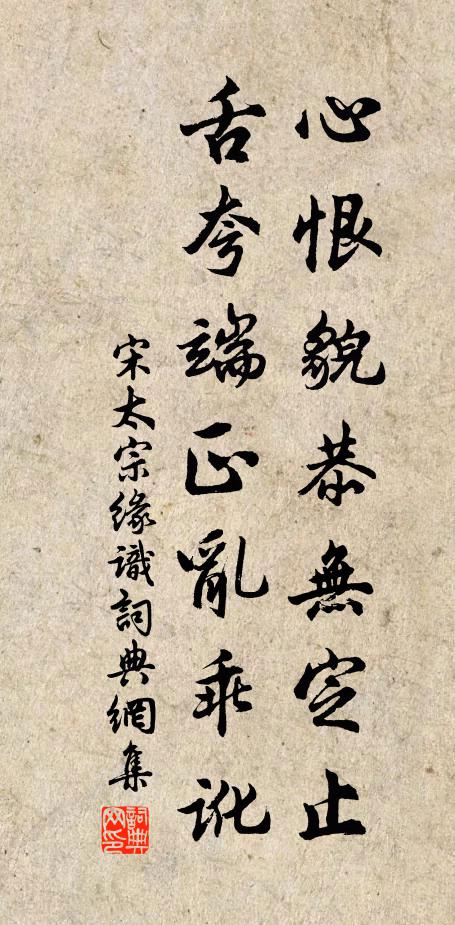 心恨貌恭無定止
舌夸端正亂乖訛
宋太宗緣識詞典網集
詞典网印